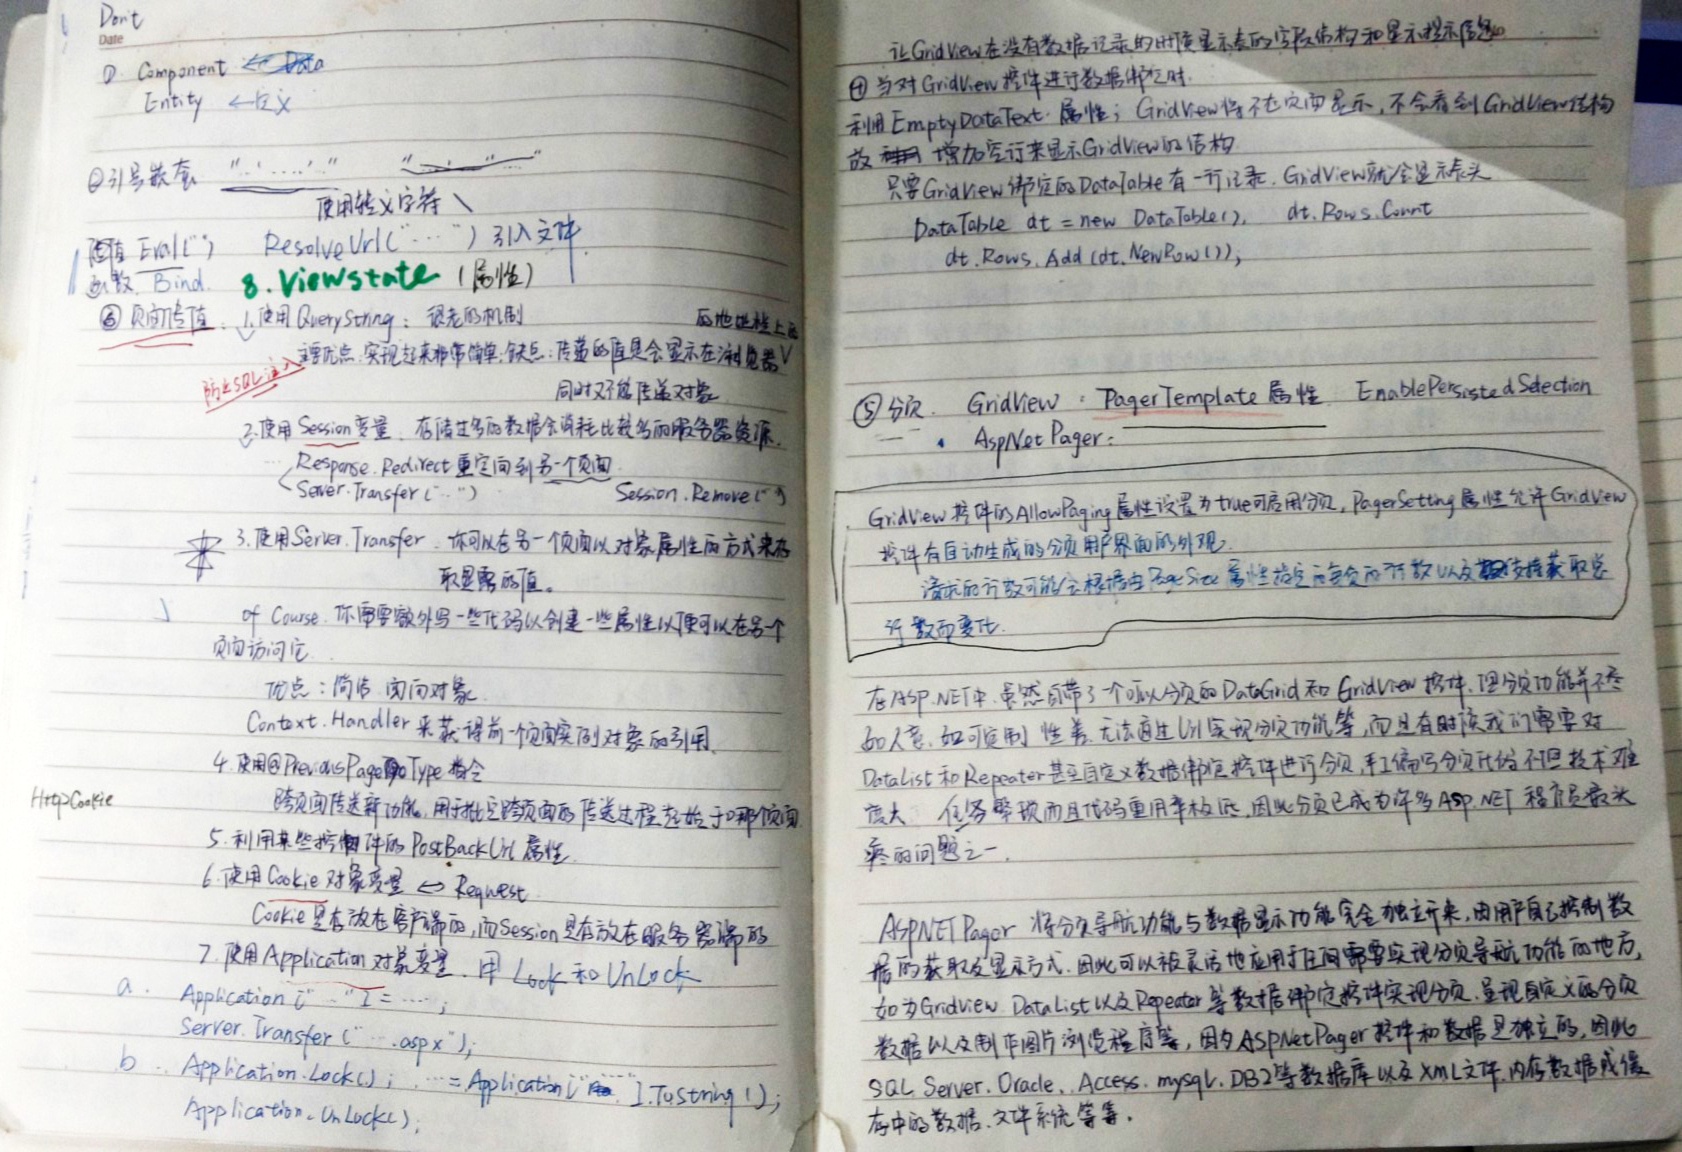 Don't
Date
① Component ← Data
Entity ← 定义
②引号嵌套 "‘....’" "‘ " "
使用转义字符 \
Eval("") ResolveUrl("...") 引入文件
函数 Bind. 8. Viewstate (属性)
③ 页面传值: 1.使用QueryString: 很老的机制
的地址栏上面
主要优点:实现起来非常简单;缺点:传递的值是会显示在浏览器√
防止SQL注入
同时又不能传递对象
2.使用Session变量. 存储过多的数据会消耗比较多的服务器资源.
Response.Redirect 重定向到另一个页面
Server.Transfer("...") Session.Remove("")
3.使用Server.Transfer. 你可以在另一个页面以对象属性的方式来存
取显露的值。
of Course. 你需要额外写一些代码以创建一些属性以便可以在另一个
页面访问它
优点:简洁 面向对象
Context.Handler 来获得前一个页面实例对象的引用.
4.使用@PreviousPageType 指令
HttpCookie
跨页面传送新功能,用于指定跨页面的传送过程起始于哪个页面
5.利用某些控件的PostBackUrl 属性
6.使用Cookie对象变量 ↔ Request
Cookie是存放在客户端的,而Session是存放在服务器端的
7.使用Application对象变量. 用 Lock 和 UnLock
a. Application["..."] = ....;
Server.Transfer("....aspx");
b. Application.Lock(); ...=Application[""].Tostring();
Application.UnLock();
让GridView在没有数据记录的时候显示表的字段结构和显示提示信息
④当对GridView控件进行数据绑定时.
利用EmptyDataText 属性; GridView将不在页面显示,不会看到GridView结构
故 增加空行来显示GridView的结构
只要GridView绑定的DataTable有一行记录. GridView就会显示表头
DataTable dt = new DataTable(), dt.Rows.Count
dt.Rows.Add(dt.NewRow());
⑤分页. GridView: PagerTemplate 属性 EnablePersistedSelection
AspNetPager:
GridView控件的AllowPaging属性设置为true可启用分页, PagerSetting属性允许GridView
控件有自动生成的分页用户界面的外观.
请求的行数可能会根据由PageSize属性指定的每页的行数以及支持获取总
行数而变化.
在ASP.NET中.虽然自带了一个可以分页的DataGrid和GridView控件.但分页功能并不尽
如人意.如可定制性差.无法通过Url实现分页功能等,而且有时候我们需要对
DataList和Repeater甚至自定义数据绑定控件进行分页,手工编写分页代码不但技术难
度大 任务繁琐而且代码重用率极低,因此分页已成为许多ASP.NET 程序员最头
疼的问题之一.
ASPNETPager 将分页导航功能与数据显示功能完全独立开来,由用户自己控制数
据的获取及显示方式.因此可以被灵活地应用于任何需要实现分页导航功能的地方,
如为GridView DataList以及Repeater等数据绑定控件实现分页.呈现自定义的分页
数据以及制作图片浏览程序等,因为ASPNetPager控件和数据是独立的,因此
SQL Server. Oracle. Access. mysql. DB2等数据库以及XML文件.内存数据或缓
存中的数据.文件系统等等.